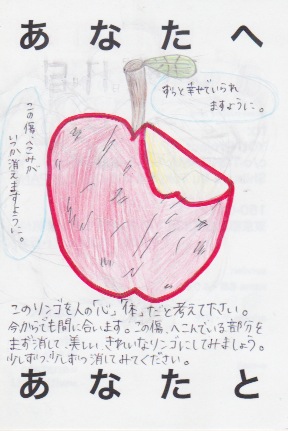 あなたへ
ずっと幸せでいられ
ますように。
この傷、へこみが
いつか消えますように。
このリンゴを人の「心」「体」だと考えて下さい。
今からでも間に合います。この傷、へこんでいる部分を
まず消して、美しい、きれいなリンゴにしてみましょう。
少しずつ、少しずつ消してみてください。
あなたと